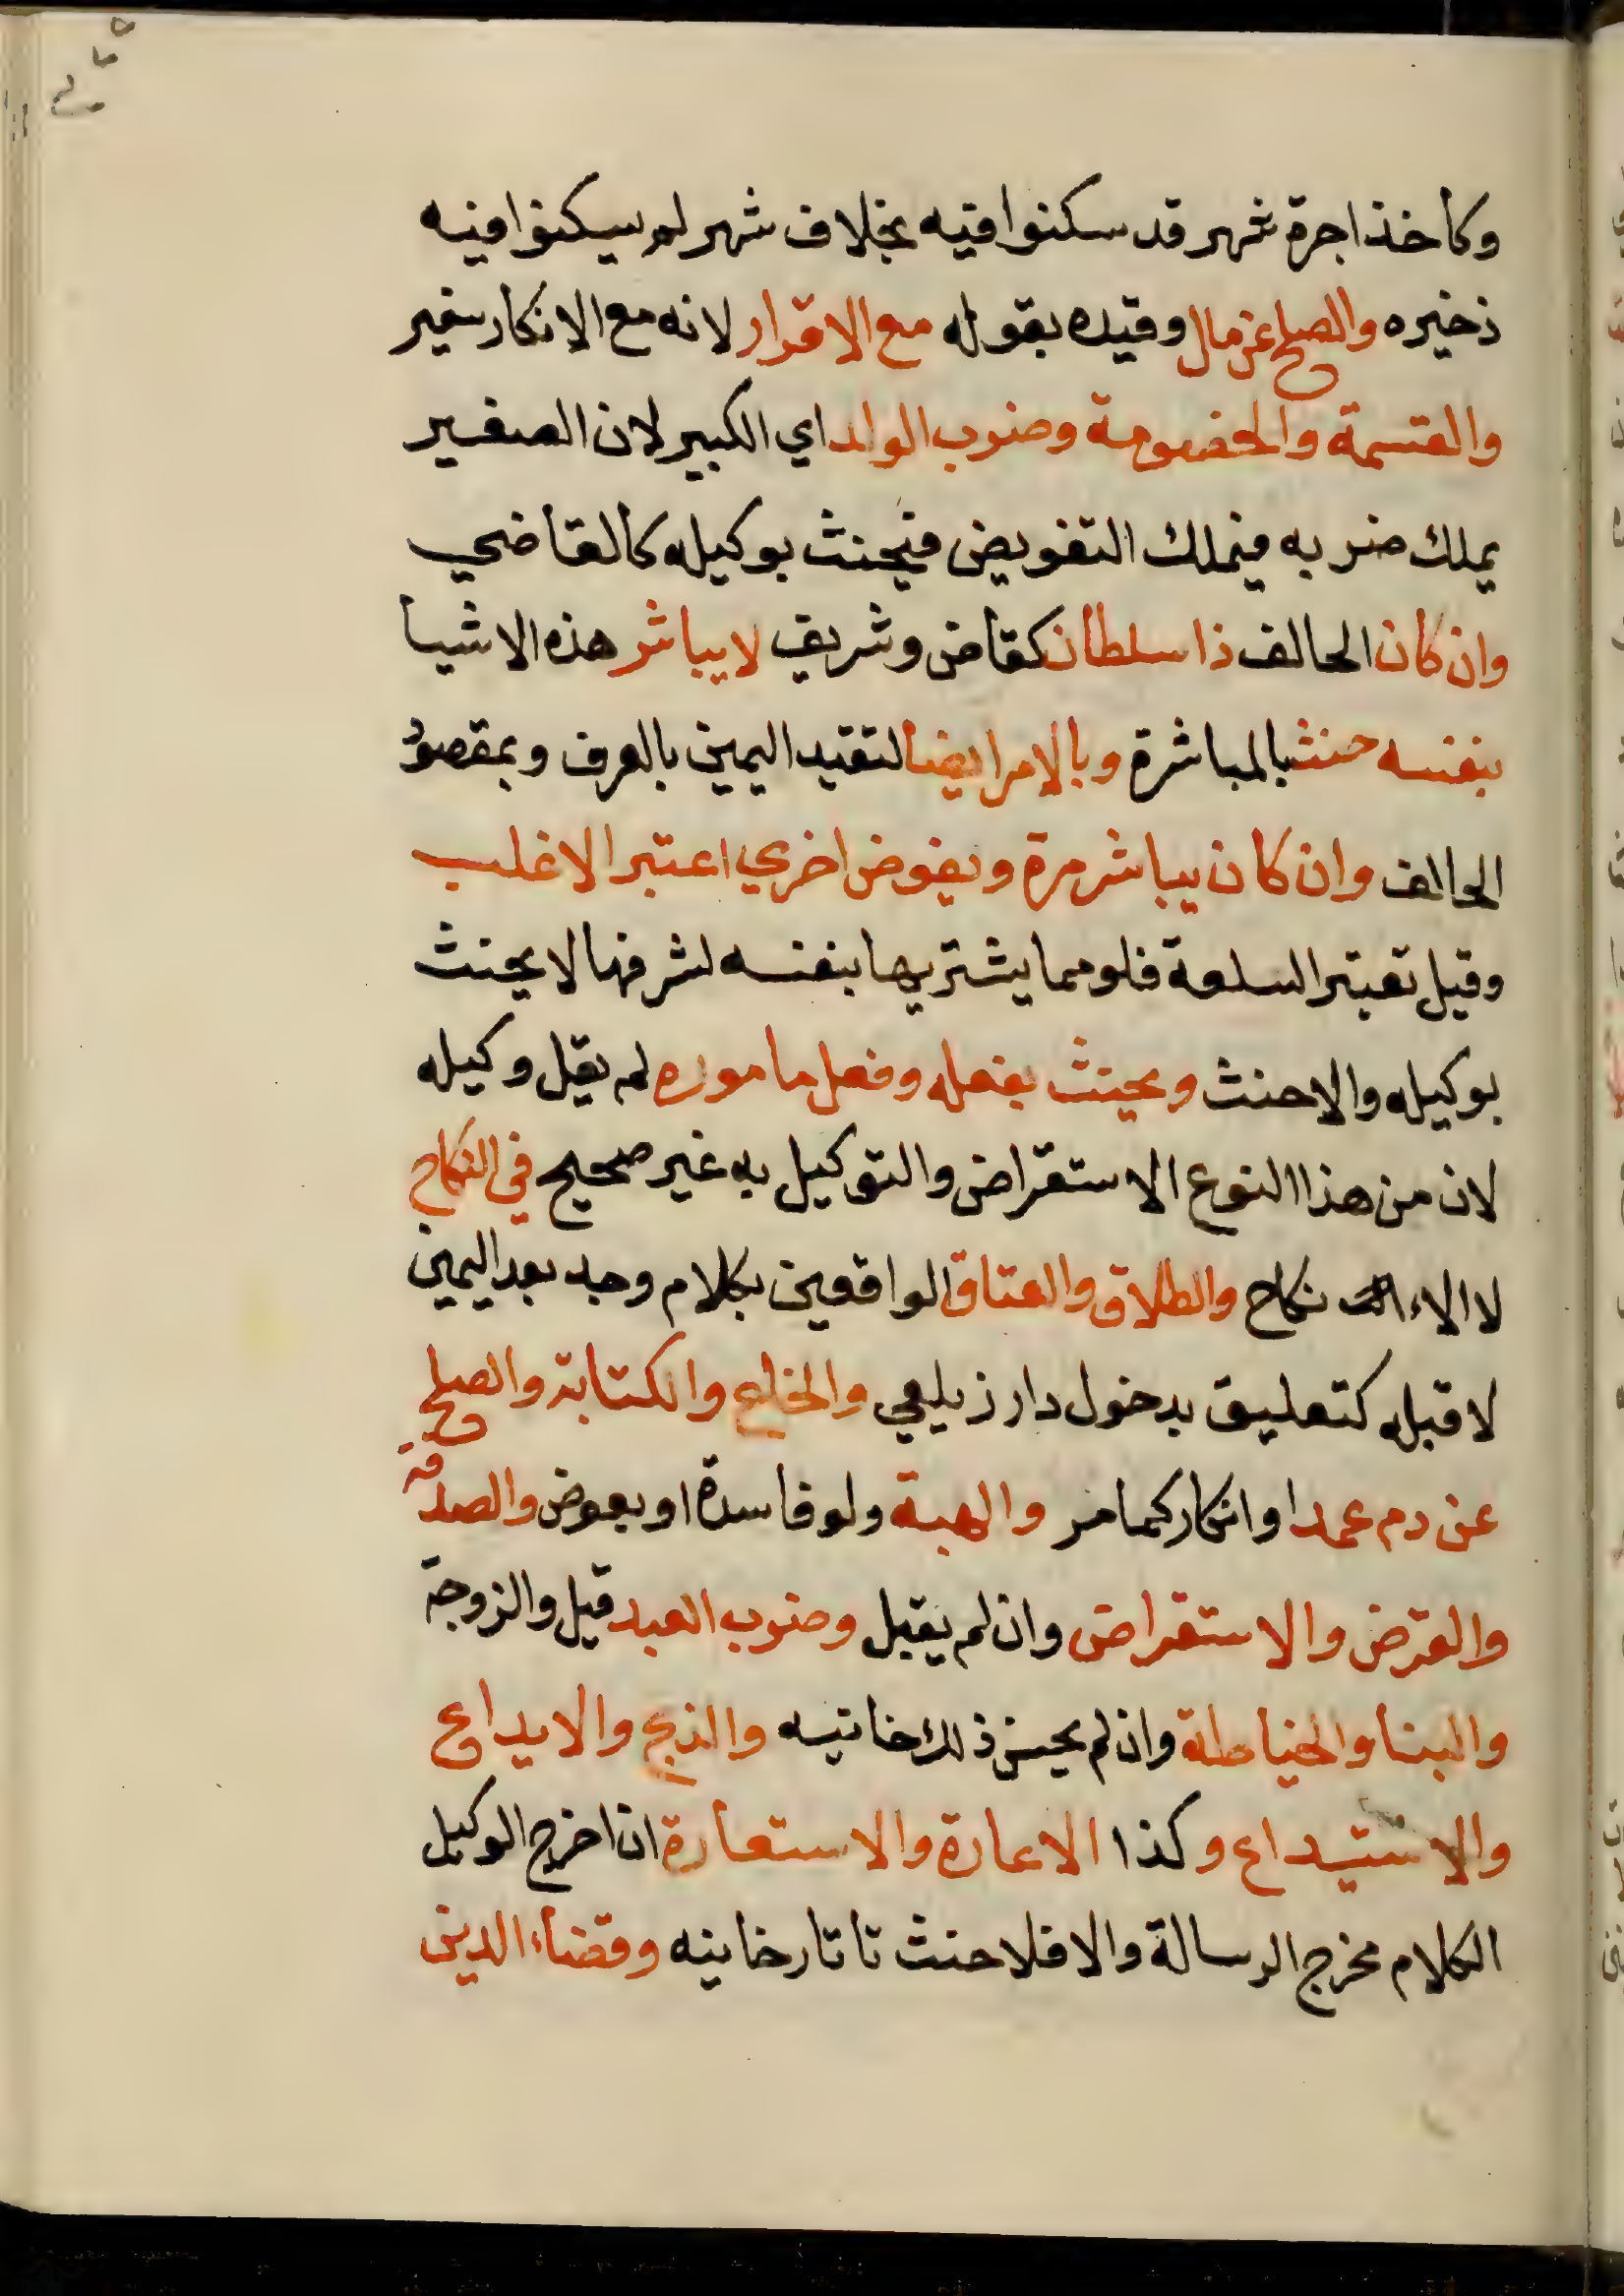 وكأخذ اجرة شهر قد سكنوا فيه بخلاف شهر لم يسكنوا فيه
ذخيره والصلح عن مال وقيده بقوله مع الاقرار لانه مع الانكار سفير
والقسمة والخصومة وضرب الولد اي الكبير لان الصغير
يملك ضربه فيملك التفويض فيحنث بوكيله كالقاضي
وان كان الحالف ذا سلطان كقاض وشريف لا يباشر هذه الاشيا
بنفسه حنث بالمباشرة وبالامر ايضا لتقيد اليمين بالعرف وبمقصود
الحالف وان كان يباشر مرة ويفوض اخري اعتبر الاغلب
وقيل تعتبر السلعة فلو مما يشتريها بنفسه لشرفها لا يحنث
بوكيله والاحنث ويحنث بفعله وفعل ماموره لم يقل وكيله
لان من هذا النوع الاستقراض والتوكيل به غير صحيح في النكاح
لا الا نكاح والطلاق والعتاق الواقعين بكلام وجد بعد اليمين
لا قبله كتعليق بدخول دار زيلعي والخلع والكتابة والصلح
عن دم عمد او انكار كما مر والهبة ولو فاسدة او بعوض والصدقة
والقرض والاستقراض وان لم يقبل وضرب العبد قيل والزوجة
والبنا والخياطة وان لم يحسن ذلك خانيه والذبح والايداع
والاستيداع وكذا الاعارة والاستعارة ان اخرج الوكيل
الكلام مخرج الرسالة والا فلا حنث تاتارخانيه وقضاء الدين